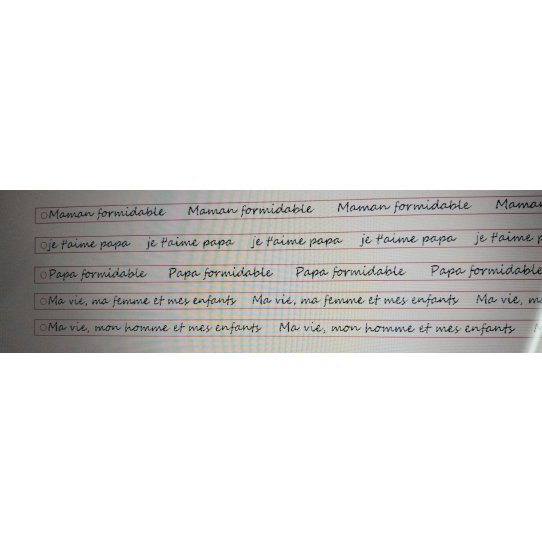 Maman formidable Maman formidable Maman formidable Maman
je t'aime papa je t'aime papa je t'aime papa je t'aime papa je t'aime
Papa formidable Papa formidable Papa formidable Papa formidable
Ma vie, ma femme et mes enfants Ma vie, ma femme et mes enfants Ma vie,
Ma vie, mon homme et mes enfants Ma vie, mon homme et mes enfants